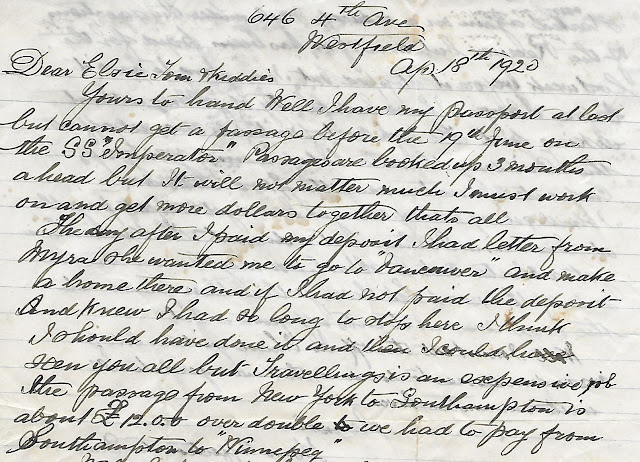 646 4th Ave
Westfield
Ap. 18th 1920
Dear Elsie Tom & Kiddies
Yours to hand Well I have my Passport at last
but cannot get a passage before the 19th June on
the SS "Imperator" Passages are booked up 3 months
ahead but It will not matter much I must work
on and get more dollars together thats all
The day after I paid my deposit I had letter from
Myra she wanted me to go to "Vancouver" and make
a home there and if I had not paid the deposit
And knew I had so long to stop here I think
I should have done it and then I could have
seen you all but Travelling is an expensive job
the passage from New York to Southampton is
about £12.0.0 over double to we had to pay from
Southampton to "Winnepeg"